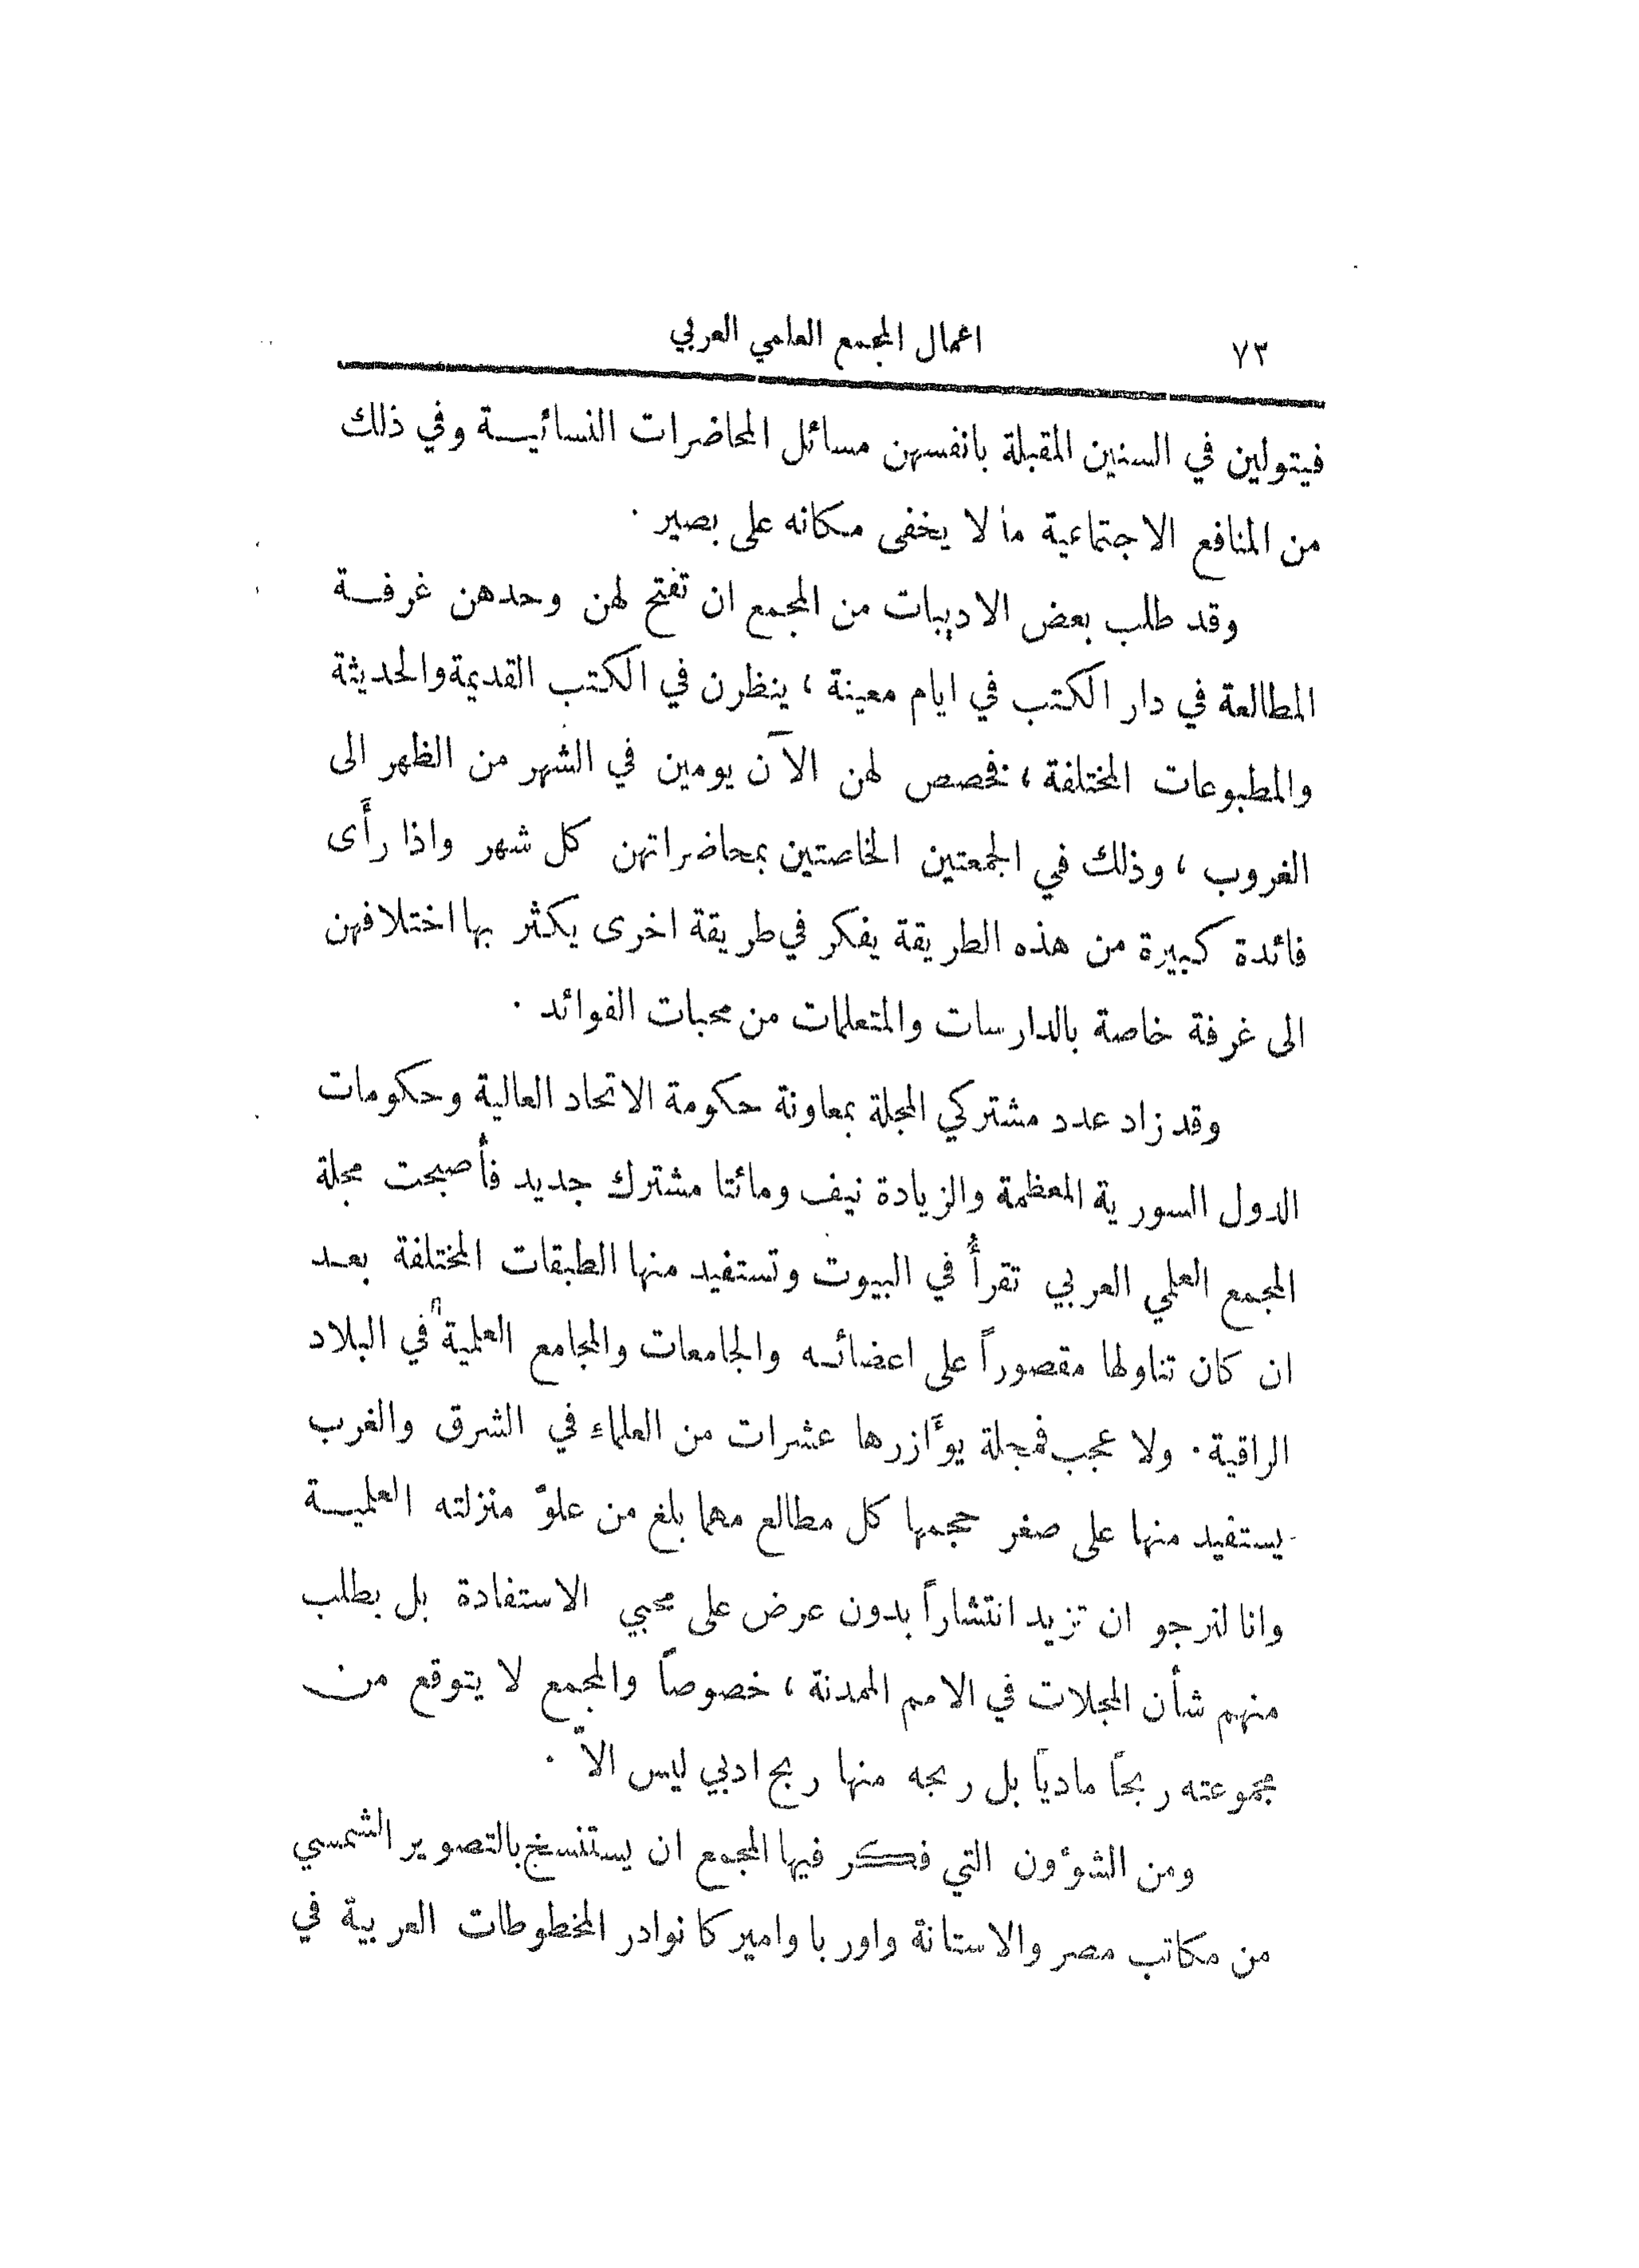 ٧٢ اعمال المجمع العلمي العربي
فيتولين في السنين المقبلة بانفسهن مسائل المحاضرات النسائيـة وفي ذلك
من المنافع الاجتماعية ما لا يخفى مكانه على بصير ٠
وقد طلب بعض الاديبات من المجمع ان تفتح لهن وحدهن غرفـة
المطالعة في دار الكتب في ايام معينة ، ينظرن في الكتب القديمة والحديثة
والمطبوعات المختلفة ، فخصص لهن الآن يومين في الشهر من الظهر الى
الغروب ، وذلك في الجمعتين الخاصتين بمحاضراتهن كل شهر واذا رأى
فائدة كبيرة من هذه الطريقة يفكر في طريقة اخرى يكثر بها اختلافهن
الى غرفة خاصة بالدارسات والمتعلمات من محبات الفوائد ٠
وقد زاد عدد مشتركي المجلة بمعاونة حكومة الاتحاد العالية وحكومات
الدول السورية المعظمة والزيادة نيف ومائتا مشترك جديد فأصبحت مجلة
المجمع العلمي العربي تقرأُ في البيوت وتستفيد منها الطبقات المختلفة بعـد
ان كان تناولها مقصوراً على اعضائـه والجامعات والمجامع العلمية في البلاد
الراقية ٠ ولا عجب فمجلة يوَّازرها عشرات من العلماء في الشرق والغرب
يستفيد منها على صغر حجمها كل مطالع مهما بلغ من علوّ منزلته العلميـة
وانا لنرجو ان تزيد انتشاراً بدون عرض على محبي الاستفادة بل بطلب
منهم شأن المجلات في الامم الممدنة ، خصوصاً والمجمع لا يتوقع من
مجموعته ربحاً مادياً بل ربحه منها ربح ادبي ليس الاّ ٠
ومن الشوءون التي فكر فيها المجمع ان يستنسخ بالتصوير الشمسي
من مكاتب مصر والاستانة واوربا واميركا نوادر المخطوطات العربية في